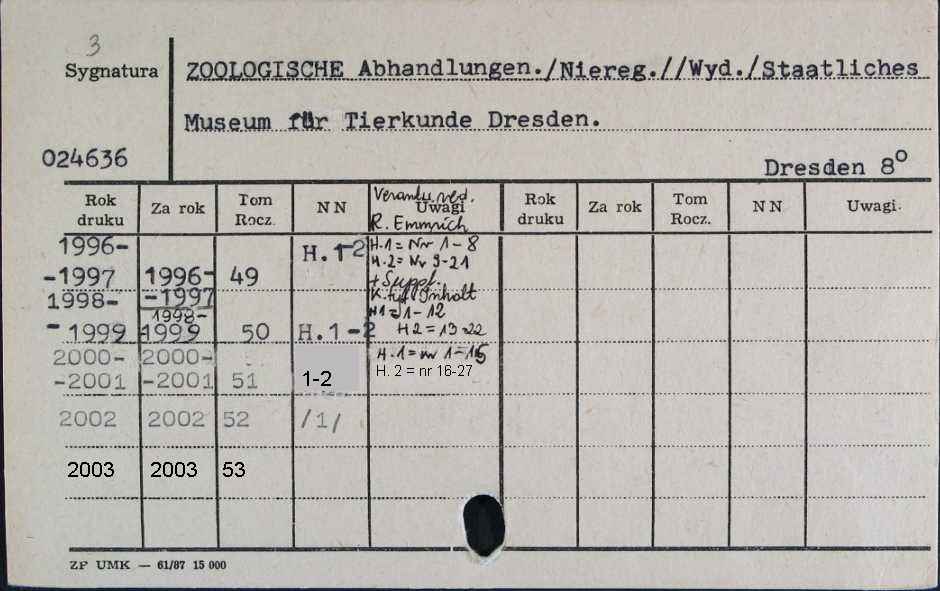 3
Sygnatura
ZOOLOGISCHE Abhandlungen./Niereg.//Wyd./Staatliches
Museum für Tierkunde Dresden.
024636
Dresden 8°
Rok druku Za rok Tom Rocz. N N Uwagi Rok druku Za rok Tom Rocz. N N Uwagi
R. Emmrich
1996-
-1997 1996-
-1997 49 H.1-2 H.1 = Nr 1-8
H.2 = Nr 9-21
+ Suppl.
1998-
-1999 1998-
1999 50 H.1-2 H1 = 1-12
H2 = 13-22
2000-
-2001 2000-
-2001 51 1-2 H.1 = nr 1-15
H. 2 = nr 16-27
2002 2002 52 /1/
2003 2003 53
ZP UMK — 61/87 15 000